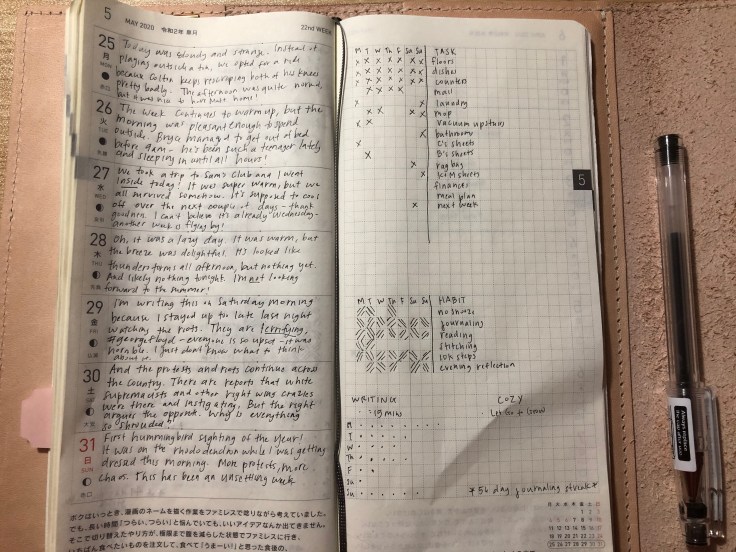 5 MAY 2020 令和2年 皐月 22nd WEEK
25
月
MON
Today was cloudy and strange. Instead of
playing outside a ton, we opted for a ride
because Colton keeps rescraping both of his knees
pretty badly. The afternoon was quite normal,
but it was nice to have Matt home!
26
火
TUE
The week continues to warm up, but the
morning was pleasant enough to spend
outside. Bryce managed to get out of bed
before 9am - he's been such a teenager lately
and sleeping in until all hours!
27
水
WED
We took a trip to Sam's Club and I went
inside today! It was super warm, but we
all survived somehow. It's supposed to cool
off over the next couple of days - thank
goodness. I can't believe it's already Wednesday -
another week is flying by!
28
木
THU
Oh, it was a lazy day. It was warm, but
the breeze was delightful. It looked like
thunderstorms all afternoon, but nothing yet.
And likely nothing tonight. I'm not looking
forward to the summer!
29
金
FRI
I'm writing this on Saturday morning
because I stayed up too late last night
watching the riots. They are terrifying.
#georgefloyd - everyone is so upset - it was
horrible. I just don't know what to think
about it.
30
土
SAT
And the protests and riots continue across
the country. There are reports that white
supremacists and other right wing crazies
were there and instigating. But the right
argues the opposite. Why is everything
so shrouded?!
31
日
SUN
First hummingbird sighting of the year!
It was on the rhododendron while I was getting
dressed this morning. More protests, more
chaos. This has been an unsettling week
ボクはいっとき、漫画のネームを描く作業をファミレスで唸りながら考えていました。
でも、長い時間「つらい、つらい」と悩んでいても、いいアイデアなんか出てきません。
そこで切り替えたやり方が、極限まで腹を減らした状態でファミレスに行き、
いちばん食べたいものを注文して、食べて「うまーい!」と思った直後の、
M T W Th F Sa Su TASK
x x x x x x x floors
x x x x x x x dishes
x x x x x x x counters
x x x x mail
x x laundry
x x x x mop
x x vacuum upstairs
x bathroom
x C's sheets
x B's sheets
x rag bag
x K+M sheets
finances
meal plan
x next week
5
M T W Th F Sa Su HABIT
no snooze
journaling
reading
stitching
10k steps
evening reflection
WRITING
· = 15 mins
M
T
W
Th
F
Sa
Su
COZY
· Let Go + Grow
*56 day journaling streak*
月 火 水 木 金 土 日
1 2 3
4 5 6 7 8 9 10
11 12 13 14 15 16 17
18 19 20 21 22 23 24
25 26 27 28 29 30 31
Always replace
the cap after use.